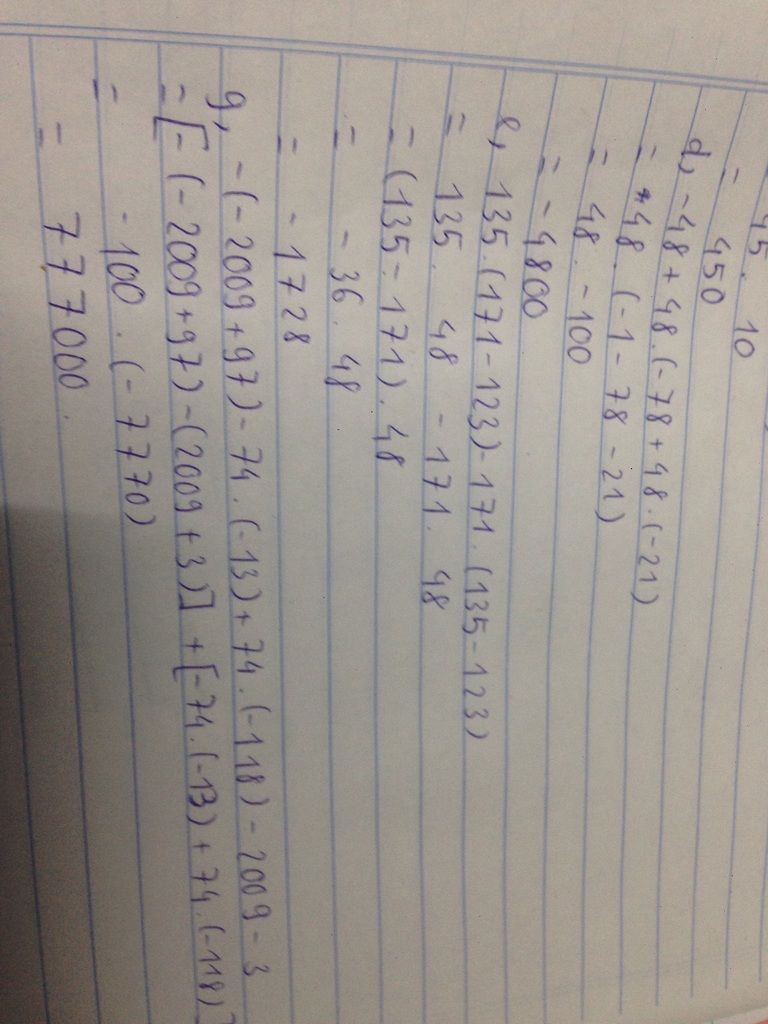 45. 10
= 450
d, -48 + 48.(-78 + 48.(-21)
= 48. (-1 - 78 - 21)
= 48. -100
= -4800
e, 135.(171-123)-171.(135-123)
= 135. 48 - 171. 48
= (135-171). 48
= -36. 48
= -1728
g, -(-2009+97)-74.(-13)+74.(-118)-2009-3
= [-(-2009+97)-(2009+3)]+[-74.(-13)+74.(-118)]
= -100.(-7770)
= 777000.